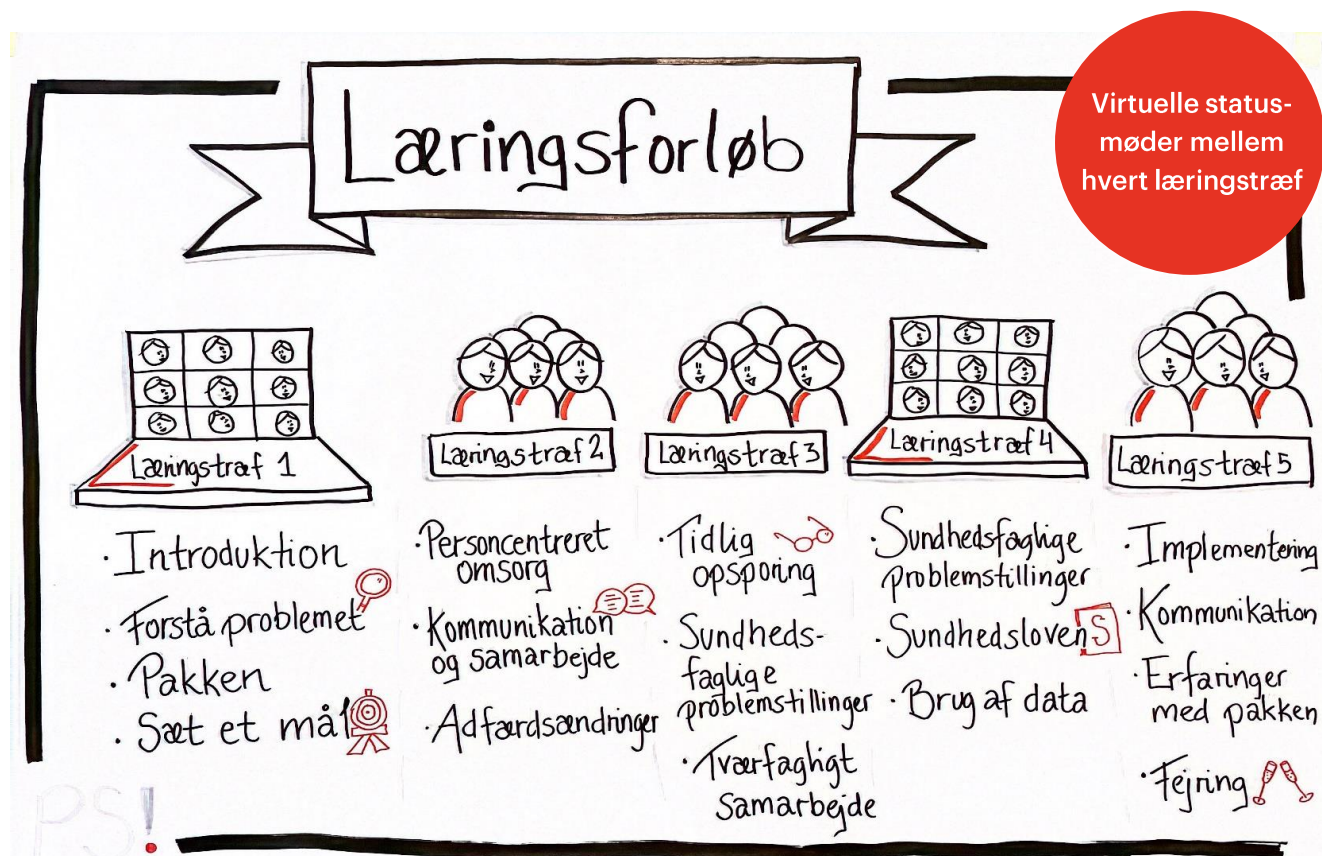 Læringsforløb
Virtuelle status-
møder mellem
hvert læringstræf
Læringstræf 1
· Introduktion
· Forstå problemet
· Pakken
· Sæt et mål
Læringstræf 2
· Personcentreret
omsorg
· Kommunikation
og samarbejde
· Adfærdsændringer
Læringstræf 3
· Tidlig
opsporing
· Sundheds-
faglige
problemstillinger
· Tværfagligt
samarbejde
Læringstræf 4
· Sundhedsfaglige
problemstillinger
· Sundhedsloven
S
· Brug af data
Læringstræf 5
· Implementering
· Kommunikation
· Erfaringer
med pakken
· Fejring
PS!